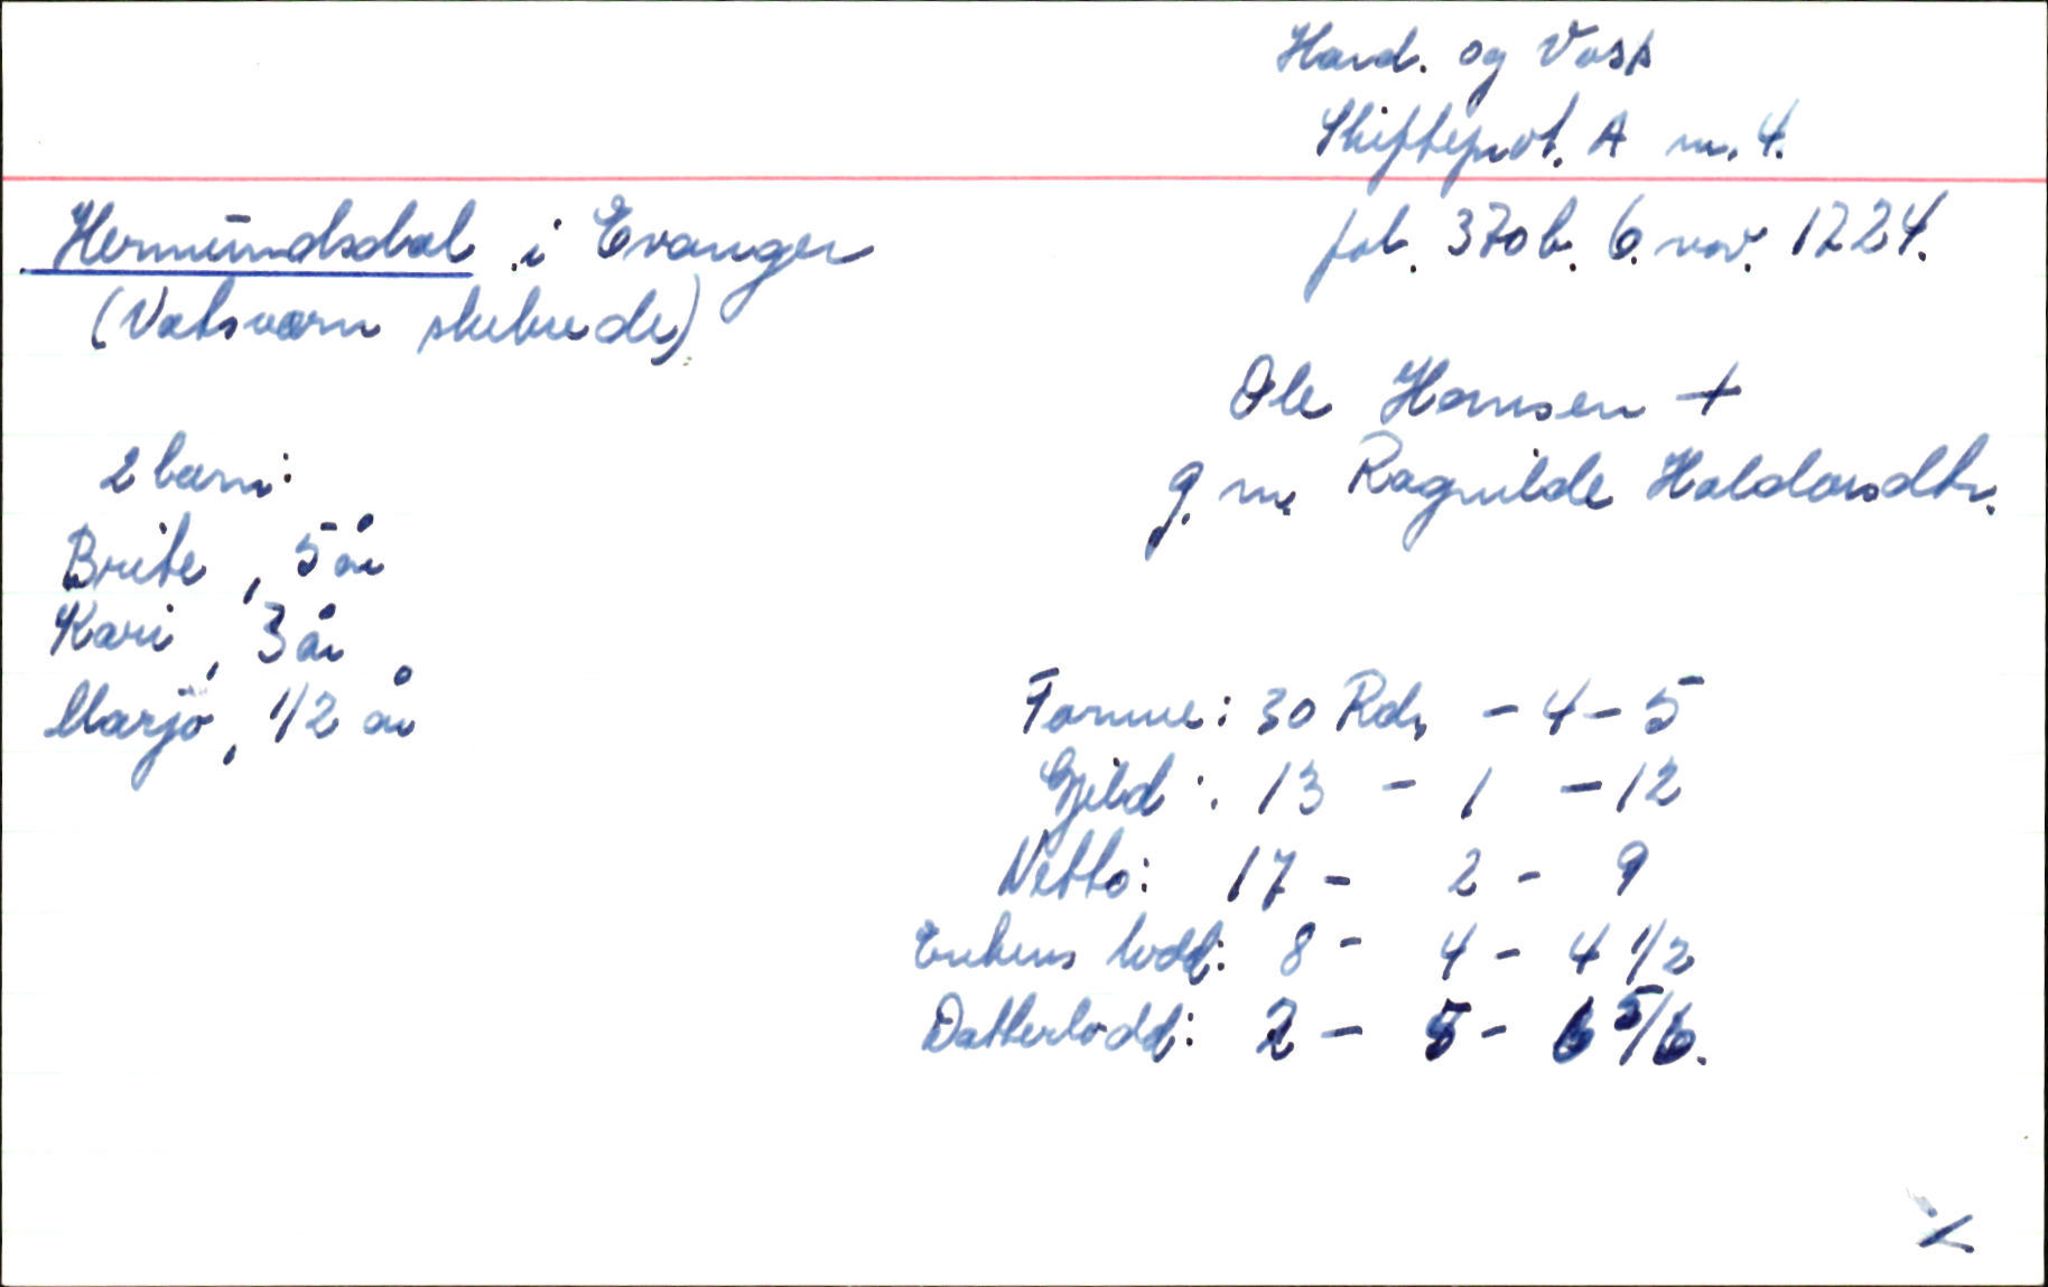 Hard. og Voss
Skifteprot. A nr. 4.
fol. 370b. 6. nov. 1724.
Hermundsdal i Evanger
(Vatsvørn skibrede)
Ole Hansen +
g. m. Ragnilde Haldorsdtr.
2 barn:
Brite, 5 år
Kari, 3 år
Marjo, 1/2 år
Formue: 30 Rdr - 4 - 5
Gjeld: 13 - 1 - 12
Netto: 17 - 2 - 9
Enkens lodd: 8 - 4 - 4 1/2
Datterlodd: 2 - 5 - 6 5/6.